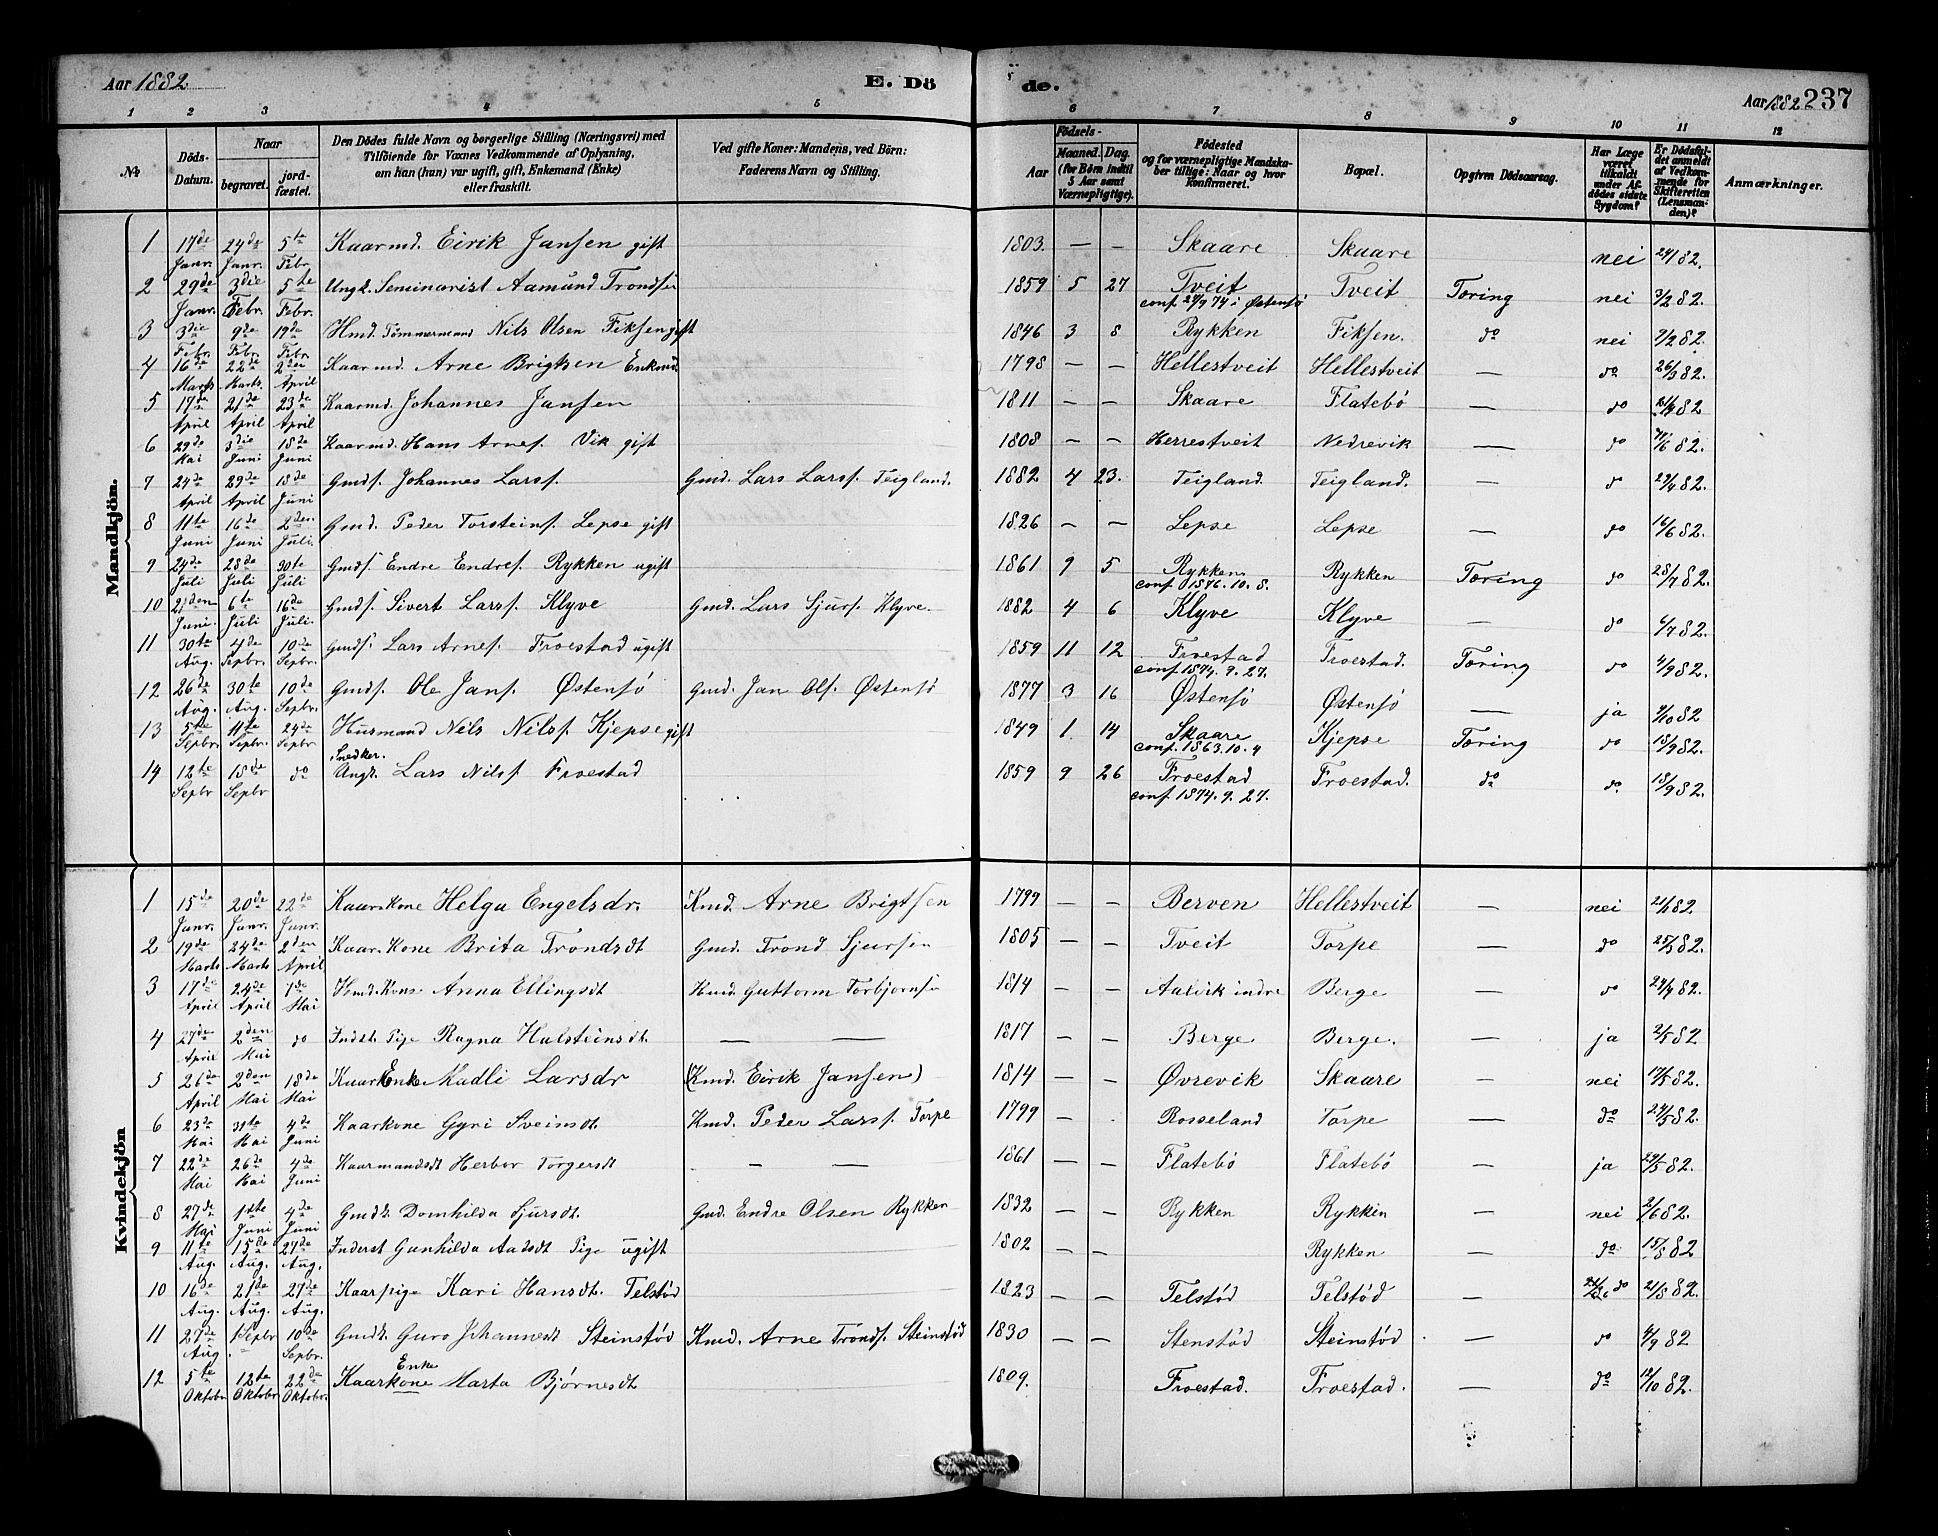 Aar 1882
E. Dö
de.
Aar 1882 237
1 2 3 4 5 6 7 8 9 10 11 12
№
Döds-Datum.
Naar
begravet.
jordfæstet.
Den Dödes fulde Navn og borgerlige Stilling (Næringsvei) med
Tilföiende for Voxnes Vedkommende af Oplysning,
om han (hun) var ugift, gift, Enkemand (Enke)
eller fraskilt.
Ved gifte Koner: Mandens, ved Börn:
Faderens Navn og Stilling.
Födsels-
Aar
Maaned. Dag.
(for Börn indtil
5 Aar samt
Værnepligtige).
Födested
og for værnepligtige Mandskaber tillige: Naar og hvor
Konfirmeret.
Bopæl.
Opgiven Dödsaarsag.
Har Læge været tilkaldt under Afdödes sidste Sygdom?
Er Dödsfaldet anmeldt af Vedkommende for Skifteretten (Lensmanden)?
Anmærkninger.
Mandkjön.
1 17de Janr. 24de Janr. 5te Febr. Kaarmd. Eirik Jansen gift 1803. — — Skaare Skaare nei 24/1 82.
2 29de Janr. 3die Febr. 5te Febr. Ungk. Seminarist Aamund Trondsen 1859 5 27 Tveit conf. 27/9 74 i Østensö Tveit Tæring nei 3/2 82.
3 3die Febr. 9de Febr. 19de Febr. Hmd. Tömmermand Nils Olsen Fiksen gift 1846 3 8 Rykken Fiksen. do nei 7/2 82.
4 16de Marts 22de Marts. 2den April Kaarmd. Arne Brigtsen Enkmd. 1798 — — Hellestveit Hellestveit — do 26/3 82.
5 17de April 21de April 23de April Kaarmd. Johannes Jansen 1811 — — Skaare Flatebö — do 82
6 29de Mai 3die Juni 18de Juni Kaarmd. Hans Arnes. Vik gift 1808 — — Herrestveit Nedrevik — do 82.
7 24de April 29de April 18de Juni Gmds. Johannes Larss. Gmd. Lars Larss. Teigland. 1882 4 23. Teigland. Teigland. — do 29/4 82.
8 11te Juni 16de Juni 2den Juli. Gmd. Peder Torsteins. Lepse gift 1826 — — Lepse Lepse — do 16/6 82.
9 24de Juli 28de Juli 30te Juli Gmds. Endre Endres. Rykken ugift 1861 9 5 Rykken conf. 1876. 10. 8. Rykken Tæring do 28/7 82.
10 Juni. 6te Juli 16de Juli. Gmds. Sivert Larss. Klyve Gmd. Lars Sjurs. Klyve. 1882 4 6 Klyve Klyve — do 6/7 82.
11 30te Aug. 4de Sepbr. 10de Sepbr. Gmds. Lars Arnes. Froestad ugift 1859 11 12 Froestad conf. 1874. 9. 27. Froestad. Tæring do 4/9 82.
12 26de Aug. 30te Aug. 10de Sepbr. Gmds. Ole Jans. Østensö Gmd. Jan Ols. Østensö 1877 3 16 Østensö Østensö — ja 82
13 5te Sepbr. 11te Sepbr. 24de Sepbr Husmand Nils Nilss. Kjepse gift Snedker. 1849 1. 14 Skaare conf. 1863. 10. 4 Kjepse Tæring do 18/9 82.
14 12te Sepbr 18de Sepbr do Ungk. Lars Nilss. Froestad 1859 9 26 Froestad conf. 1874. 9. 27. Froestad. do do. 18/9 82.
Kvindekjön
1 15de Janr. 20de Janr. 22de Janr. Kaarskone Helga Engelsdr. Kmd. Arne Brigtsen 1799 — — Berven Hellestveit — nei 21/1 82
2 19de Marts 24de Marts 2den April Kaar. Kone Brita Trondsdt Gmd. Trond Sjursen 1805 — — Tveit Torpe — do 25/3 82.
3 17de April 24de April 7de Mai Hmd. Kone Anna Ellingsdt Kmd. Guttorm Torbjørnsen 1814 — — Aalvik indre Berge — do 24/4 82.
4 27de April 2den Mai do Indst. Pige Ragna Halsteinsdt. — — 1817 — — Berge Berge. — ja 2/5 82
5 26de April 2den Mai 18de Mai Kaar Enke Madli Larsdr (Kmd. Eirik Jansen) 1814 — — Øvrevik Skaare — nei 17/5 82.
6 23de Mai 31te Mai 4de Juni Kaarkone Gyri Sveinsdt. Kmd. Peder Larss. Torpe 1799 — Rosseland Torpe — do 24/5 82.
7 22de Mai 26de Mai 4de Juni Kaarmandsdt Herbor Torgersdt — — 1861 — — Flatebö Flatebö — ja 24/5 82.
8 27de Mai 1ste Juni 4de Juni Gmdk. Domhilda Sjursdt. Gmd. Endre Olsen Rykken 1832 — — Rykken Rykken — nei 2/6 82.
9 11te Aug. 15de Aug. 27de Aug. Inderst Gunhilda Aadsdt Pige ugift 1802 — — Rykken do 15/8 82
10 16de Aug. 21de Aug. 27de Aug. Kaarpige Kari Hansdt. Telstöd 1823 — — Telstöd Telstöd — do 21/8 82.
11 27de Aug 1 Sepbr. 10de Sepbr. Gmdk. Guro Johannesdt Steinstöd Kmd. Arne Tronds. Steinstöd 1830 — — Stenstöd Steinstöd. — do 4/9 82
12 5te Oktobr 12te Oktobr 22de Oktobr. Kaarkone Enke Marta Bjørnesdt 1809. Froestad. Froestad. — do 12/10 82.